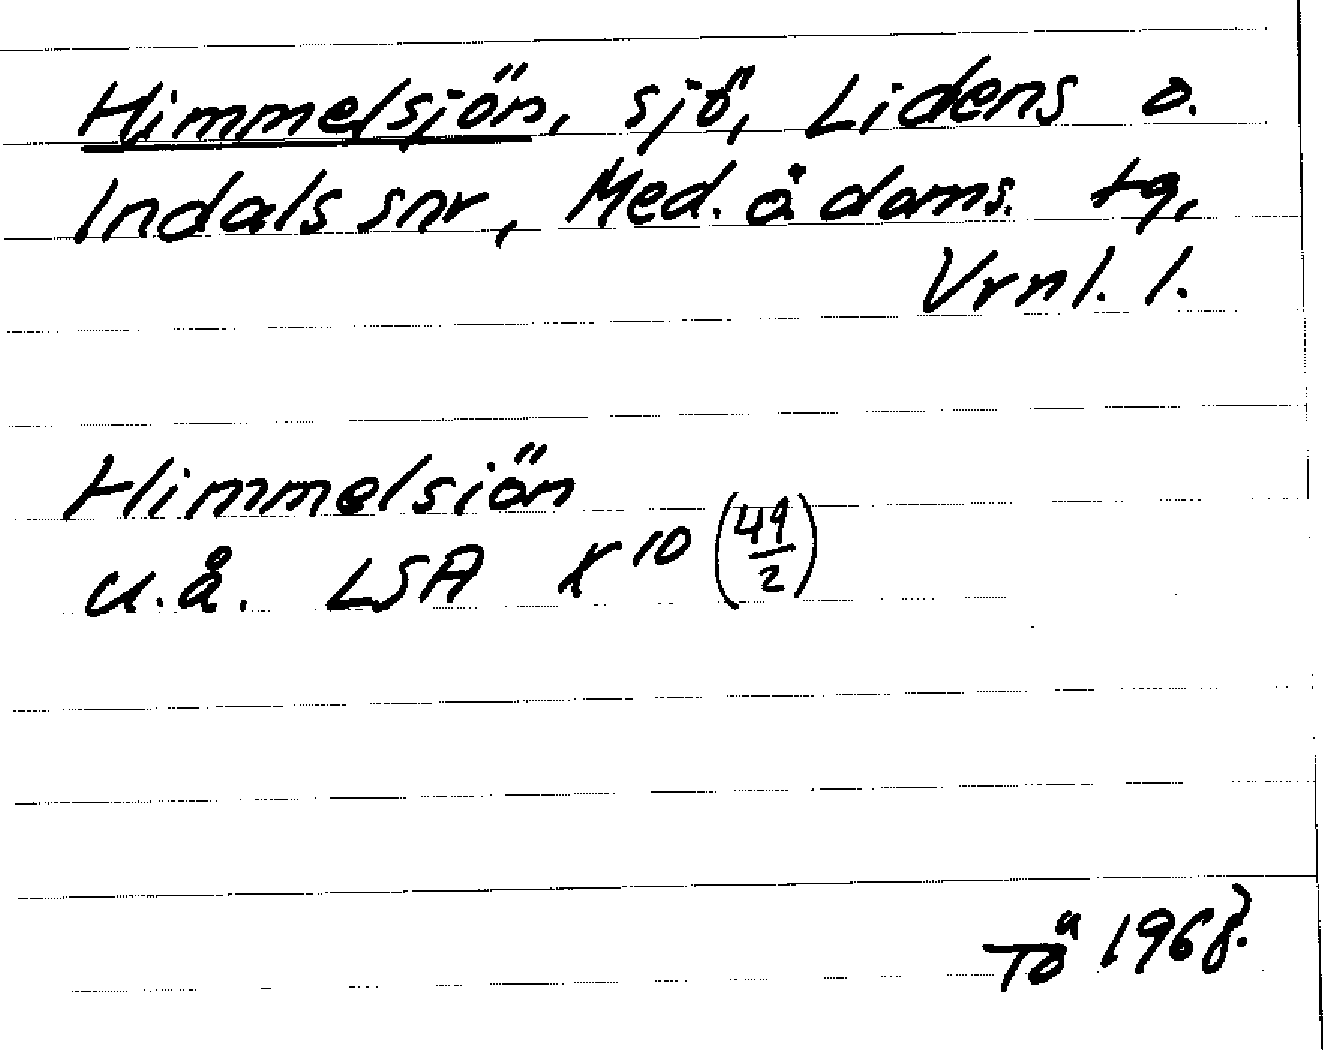 Himmelsjön, sjö, Lidens o.
Indals snr, Med. å doms. tg,
Vrnl. l.
Himmelsiön
u.å. LSA X 10 (49/2)
Tö 1968.